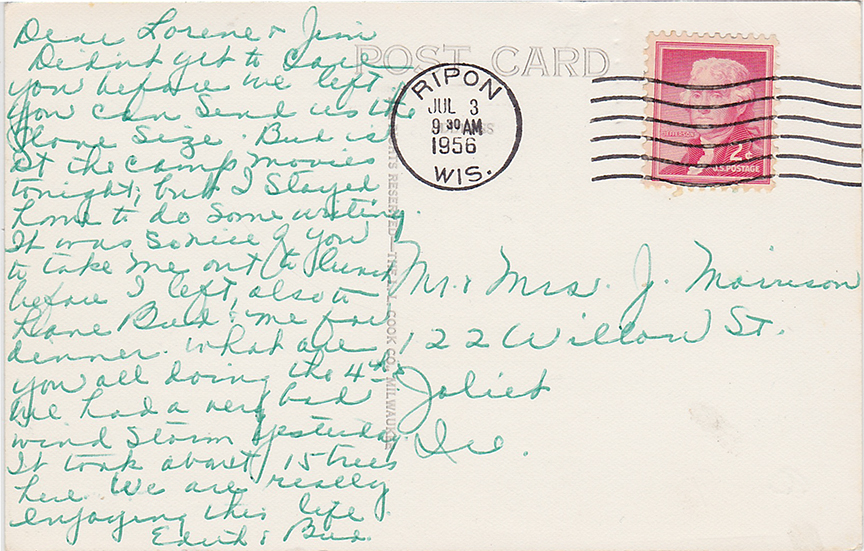 Dear Lorene & Jim
Didn't get to call
you before we left
you can send us the
Stone size. Bud is
at the camp movies
tonight, but I stayed
home to do some writing.
It was so nice of you
to take me out to lunch
before I left, also to
have Bud & me for
dinner. What are
you all doing the 4th?
We had a very bad
wind storm yesterday.
It took about 15 trees
here. We are really
enjoying this life.
Edith & Bud.
POST CARD
RIPON
JUL 3
9 30 AM
1956
WIS.
JEFFERSON
2¢
U.S. POSTAGE
RIGHTS RESERVED—THE L.L. COOK CO., MILWAUKEE
Mr. & Mrs. J. Morrison
122 Willow St.
Joliet
Ill.